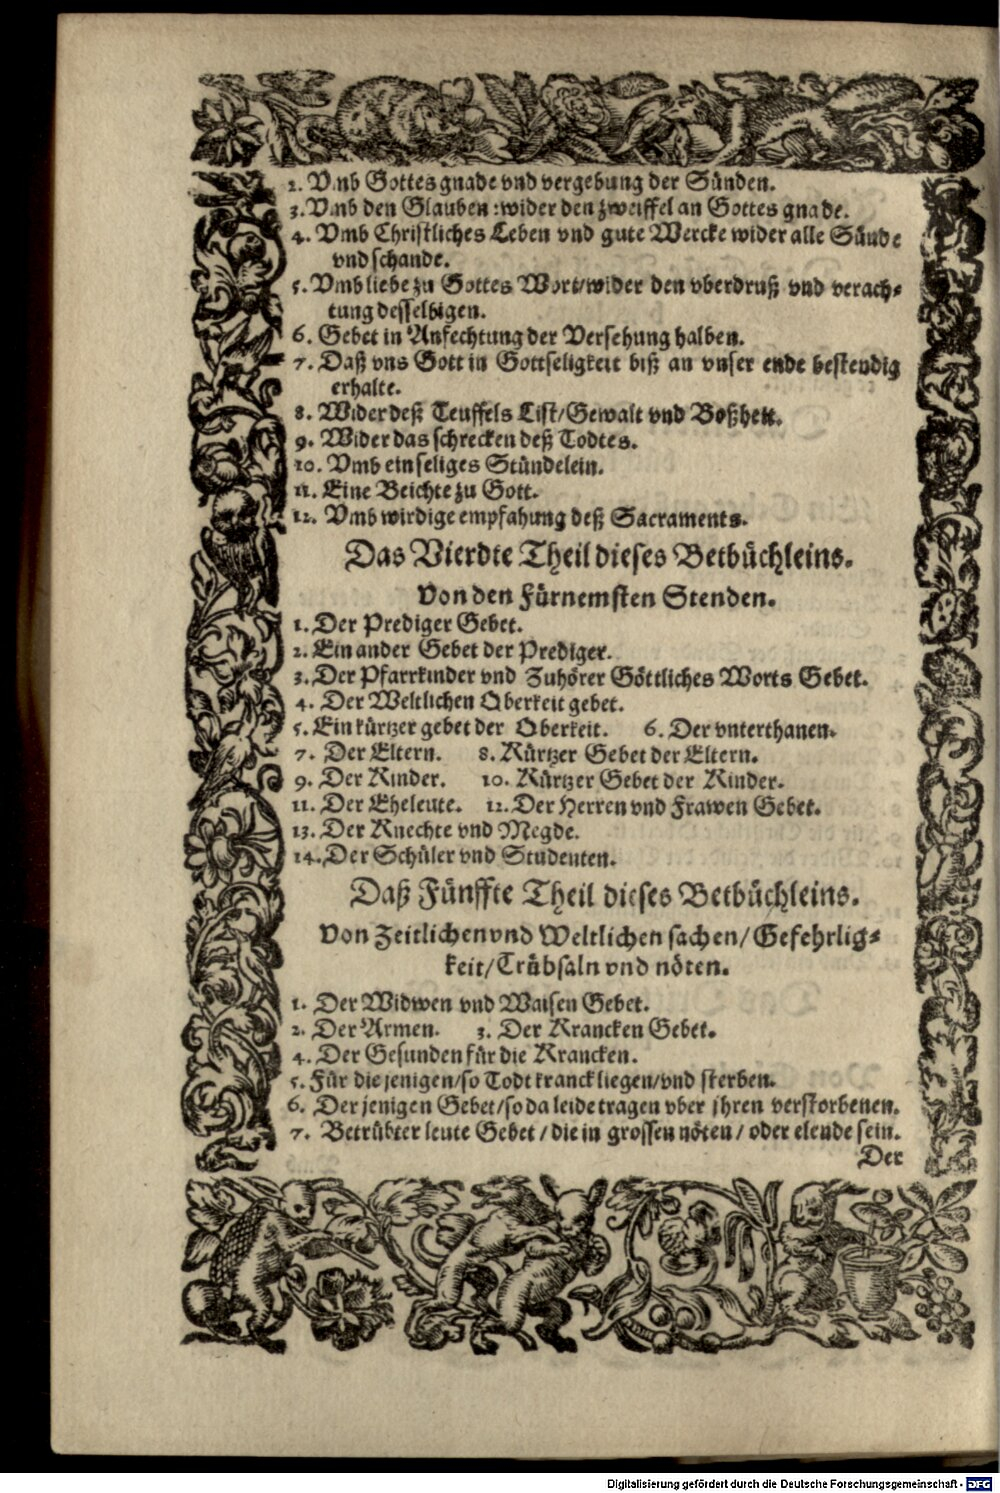 2. Vmb Gottes gnade vnd vergebung der Sünden.
3. Vmb den Glauben: wider den zweiffel an Gottes gnade.
4. Vmb Christliches Leben vnd gute Wercke wider alle Sünde
vnd schande.
5. Vmb liebe zu Gottes Wort/wider den vberdruß vnd verach-
tung desselbigen.
6. Gebet in Anfechtung der Versehung halben.
7. Daß vns Gott in Gottseligkeit biß an vnser ende bestendig
erhalte.
8. Wider deß Teuffels List/Gewalt vnd Boßheit.
9. Wider das schrecken deß Todtes.
10. Vmb ein seliges Stündelein.
11. Eine Beichte zu Gott.
12. Vmb wirdige empfahung deß Sacraments.
Das Vierdte Theil dieses Betbüchleins.
Von den Fürnemsten Stenden.
1. Der Prediger Gebet.
2. Ein ander Gebet der Prediger.
3. Der Pfarrkinder vnd Zuhörer Göttliches Worts Gebet.
4. Der Weltlichen Oberkeit gebet.
5. Ein kürtzer gebet der Oberkeit. 6. Der vnterthanen.
7. Der Eltern. 8. Kürtzer Gebet der Eltern.
9. Der Kinder. 10. Kürtzer Gebet der Kinder.
11. Der Eheleute. 12. Der Herren vnd Frawen Gebet.
13. Der Knechte vnd Megde.
14. Der Schüler vnd Studenten.
Daß Fünffte Theil dieses Betbüchleins.
Von Zeitlichen vnd Weltlichen sachen/Gefehrlig-
keit/Trübsaln vnd nöten.
1. Der Widwen vnd Waisen Gebet.
2. Der Armen. 3. Der Krancken Gebet.
4. Der Gesunden für die Krancken.
5. Für die jenigen/so Todt kranck liegen/vnd sterben.
6. Der jenigen Gebet/so da leide tragen vber jhren verstorbenen.
7. Betrübter leute Gebet/die in grossen nöten/oder elende sein.
Der
Digitalisierung gefördert durch die Deutsche Forschungsgemeinschaft - DFG